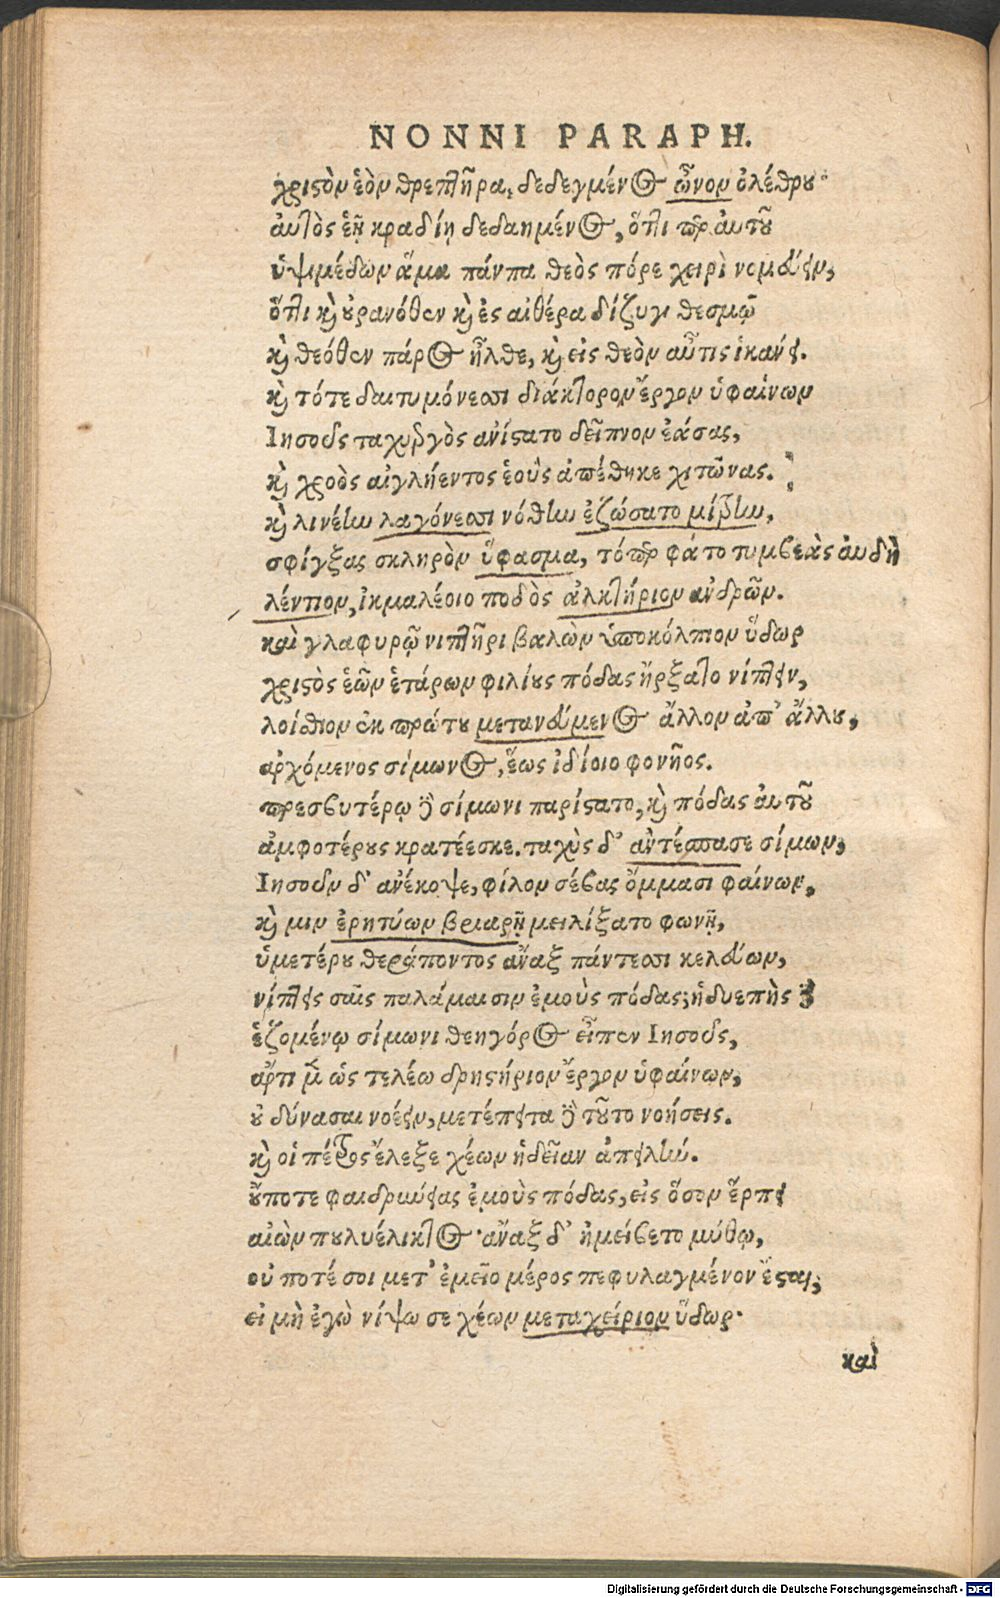 NONNI PARAPH.
χριστὸν ἑὸν θρεπτῆρα, δεδεγμένος ὦνον ὀλέθρου·
αὐτὸς ἑῇ κραδίῃ δεδαημένος, ὅτι περ αὐτοῦ
ὑψιμέδων ἅμα πάντα θεὸς πόρε χειρὶ νομεύειν,
ὅτι καὶ οὐρανόθεν καὶ ἐς αἰθέρα δίζυγι θεσμῷ
καὶ θεόθεν πάρος ἦλθε, καὶ εἰς θεὸν αὖτις ἱκάνει.
καὶ τότε δαιτυμόνεσσι διάκτορον ἔργον ὑφαίνων
Ιησοῦς ταχυεργὸς ἀνίστατο δεῖπνον ἐάσας,
καὶ χροὸς αἰγλήεντος ἑοὺς ἀπέθηκε χιτῶνας.
καὶ λινέην λαγόνεσσι νόθην ἐζώσατο μίτρην,
σφίγξας σκληρὸν ὕφασμα, τό περ φάτο τυμβεὰς αὐδὴ
λέντιον, ἰκμαλέοιο ποδὸς ἀλκτήριον ἀνδρῶν.
καὶ γλαφυρῷ νιπτῆρι βαλὼν ὑποκόλπιον ὕδωρ
χριστὸς ἑῶν ἑτάρων φιλίους πόδας ἤρξατο νίπτειν,
λοίσθιον ἐκ πρώτου μετανεύμενος ἄλλον ἀπ' ἄλλου,
ἀρχόμενος σίμωνος, ἕως ἰδίοιο φονῆος.
πρεσβυτέρῳ δὲ σίμωνι παρίστατο, καὶ πόδας αὐτοῦ
ἀμφοτέρους κρατέεσκε. ταχὺς δ' ἀντέσπασε σίμων,
Ιησοῦν δ' ἀνέκοψε, φίλον σέβας ὄμμασι φαίνων,
καὶ μιν ἐρητύων βριαρῇ μειλίξατο φωνῇ,
ὑμετέρου θεράποντος ἄναξ πάντεσσι κελεύων,
νίπτεις σαῖς παλάμαισιν ἐμοὺς πόδας; ἡδυεπὴς δὲ
ἑζομένῳ σίμωνι θεηγόρος εἶπεν Ιησοῦς,
ἄρτι μὲν ὡς τελέω δρηστήριον ἔργον ὑφαίνων,
οὐ δύνασαι νοέειν, μετέπειτα δὲ τοῦτο νοήσεις.
καὶ οἱ πέτρος ἔλεξε χέων ἡδεῖαν ἀπειλήν.
οὔποτε φαιδρύνειας ἐμοὺς πόδας, εἰς ὅσον ἕρπει
αἰὼν πουλυέλικτος· ἄναξ δ' ἠμείβετο μύθῳ,
οὐ ποτέ σοι μετ' ἐμεῖο μέρος πεφυλαγμένον ἔσται,
εἰ μὴ ἐγὼ νίψω σε χέων μεταχείριον ὕδωρ·
καὶ
Digitalisierung gefördert durch die Deutsche Forschungsgemeinschaft - DFG